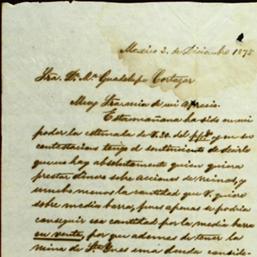 Mexico 2. de Diciembre 1875
Sra. Da. Ma. Guadalupe Cortazar
Muy Sra. mia de mi aprecio.
Esta mañana ha sido en mi
poder la estimada de V. 30. del ppdo. y en su
contestacion tengo el sentimiento de decirle
que no hay absolutamente quien quiera
prestar dinero sobre acciones de minas, y
mucho menos la cantidad que V. quiere
sobre media barra, pues apenas se podria
conseguir esa cantidad por la media barra
en venta, por que ademas de tener la
mina de Sta. Ines una deuda conside-